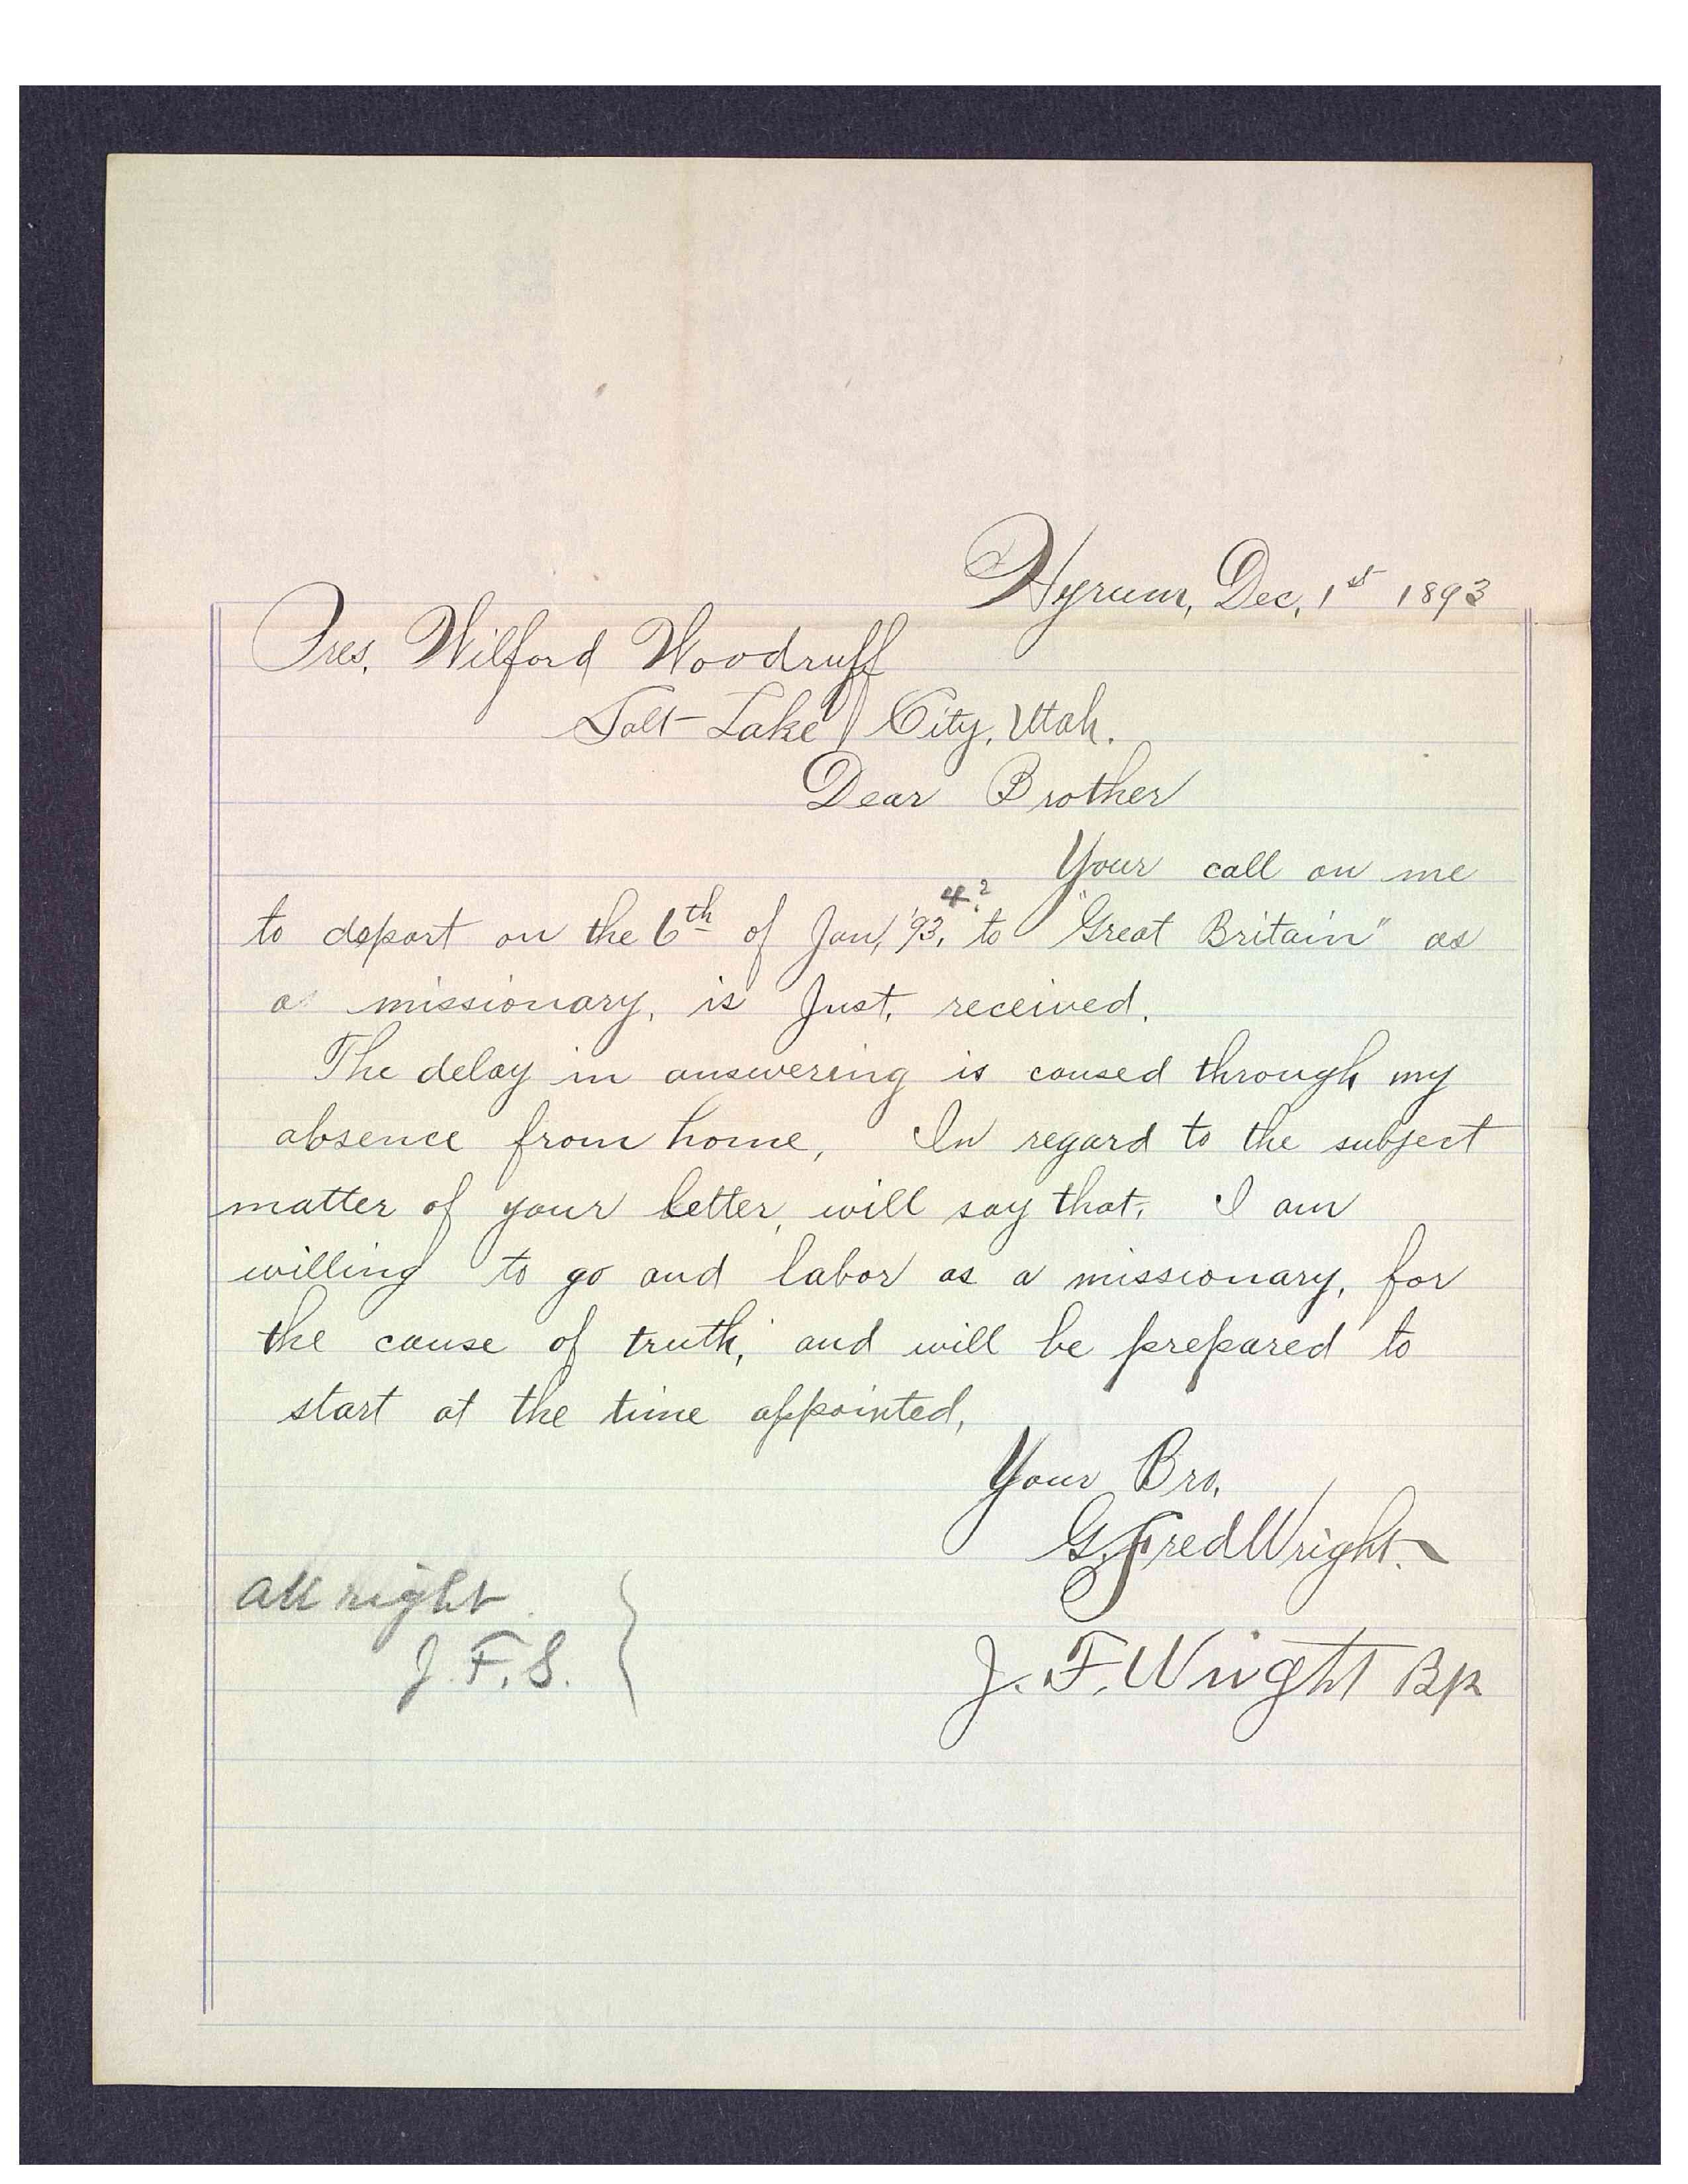 Hyrum, Dec, 1st 1893
Pres. Wilford Woodruff
Salt Lake City, Utah.
Dear Brother
Your call on me
4?
to depart on the 6th of Jan, '93, to "Great Britain" as
a missionary, is Just, received.
The delay in answering is caused through my
absence from home, In regard to the subject
matter of your letter, will say that, I am
willing to go and labor as a missionary, for
the cause of truth, and will be prepared to
start at the time appointed,
Your Bro,
G. Fred Wright.
All right
J. F. S.
J. F. Wright Bp